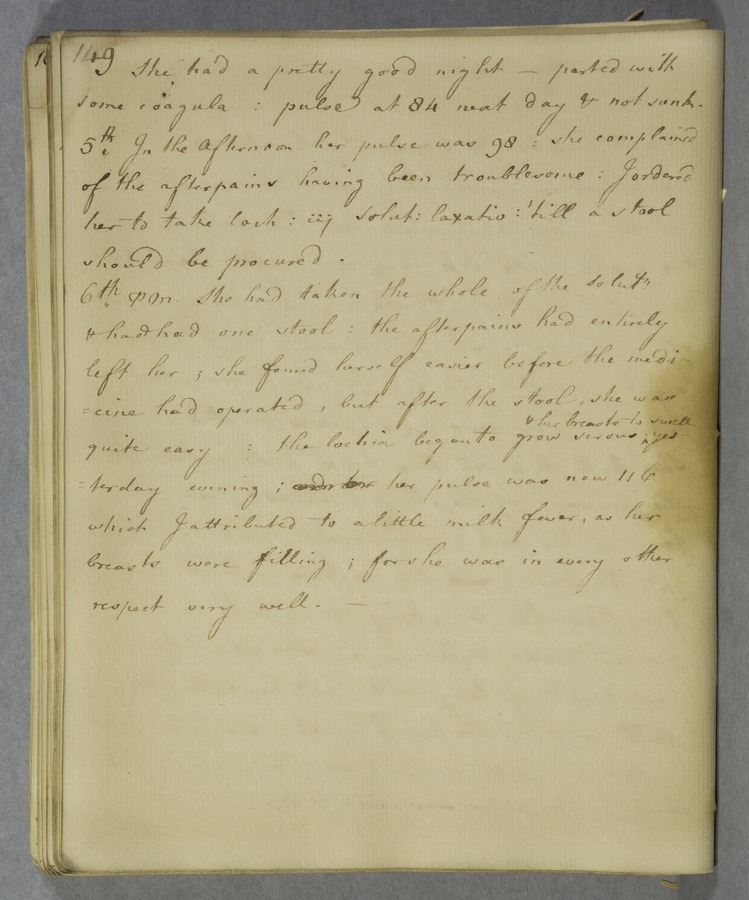 149
She had a pretty good night — parted with
some coagula : pulse at 84 next day & not sunk.
5th. In the Afternoon her pulse was 98 : she complained
of the afterpains having been troublesome : I ordered
her to take Coch : iij solut: laxativ : 'till a stool
should be procured .
6th PM. She had taken the whole of the solutn
& had had one stool : the afterpains had entirely
left her ; she found herself easier before the medi-
=cine had operated , but after the stool, she was
& her breasts to swell
quite easy : the lochia began to grow serous ; yes-
=terday evening ; her pulse was now 116
which I attributed to a little milk fever, as her
breasts were filling ; for she was in every other
respect very well. —